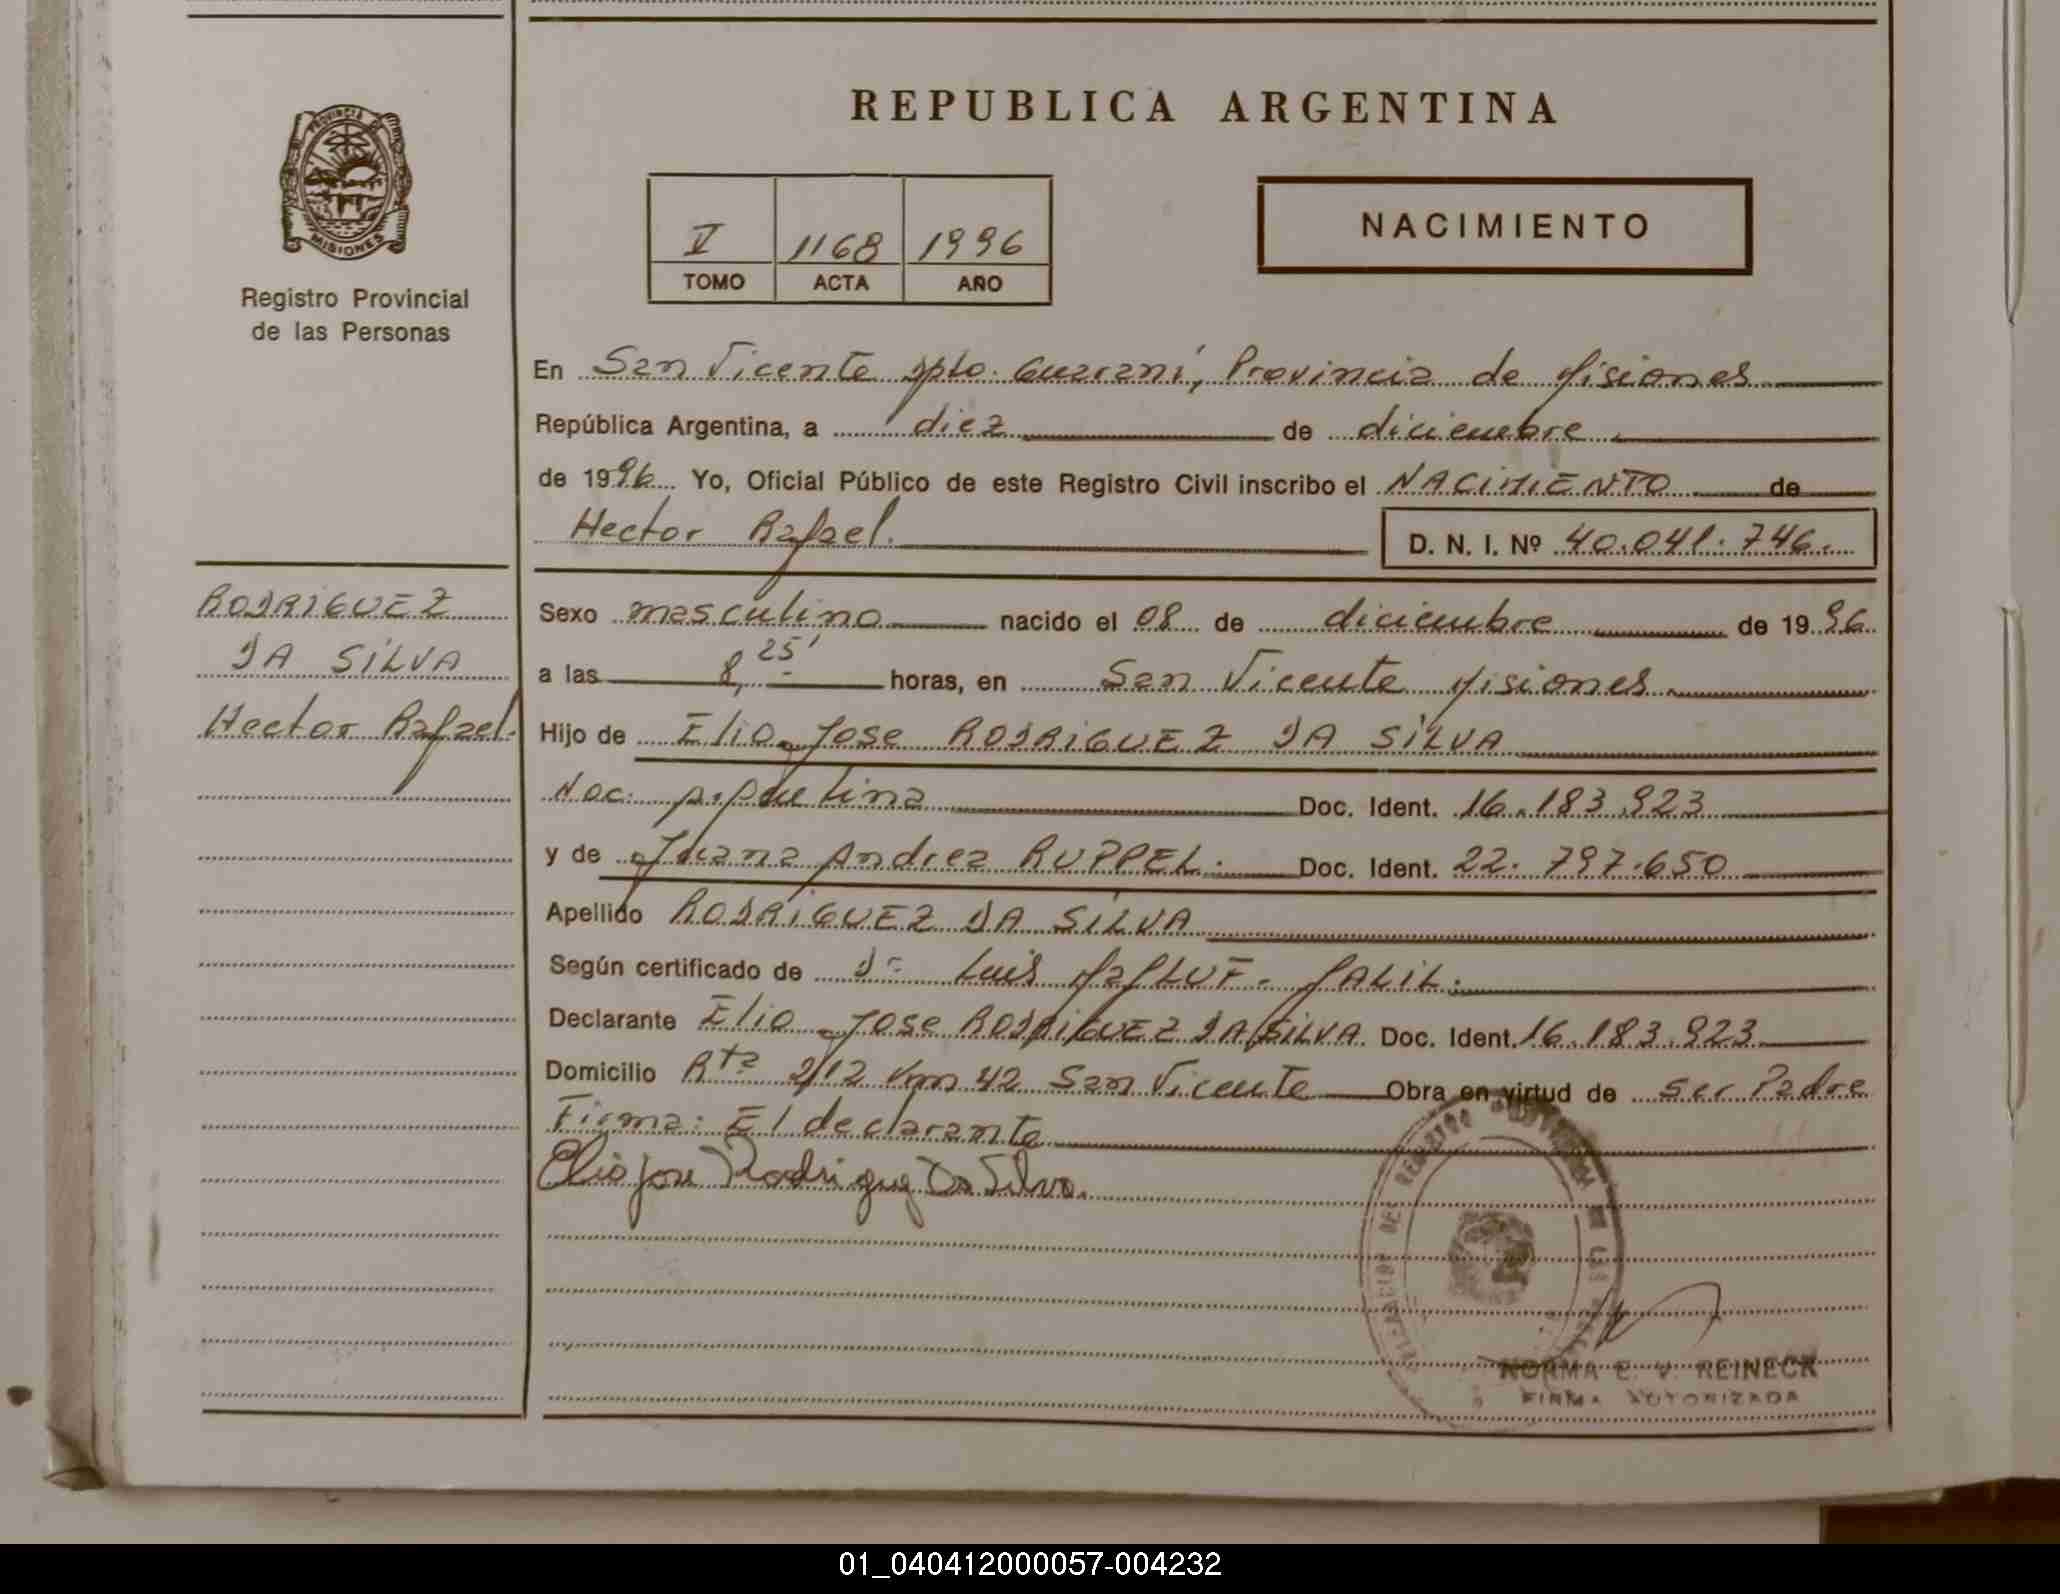 REPUBLICA ARGENTINA
PROVINCIA DE
MISIONES
Registro Provincial
de las Personas
V 1168 1996
TOMO ACTA AÑO
NACIMIENTO
En San Vicente Dpto. Guaraní, Provincia de Misiones
República Argentina, a diez de diciembre
de 1996 Yo, Oficial Público de este Registro Civil inscribo el NACIMIENTO de
Hector Rafael. D. N. I. Nº 40.041.746.
RODRIGUEZ
DA SILVA
Hector Rafael.
Sexo masculino nacido el 08 de diciembre de 1996
a las 8,25' horas, en San Vicente Misiones
Hijo de Elio Jose RODRIGUEZ DA SILVA
Nac. Argentina Doc. Ident. 16.183.923
y de Juana Andrea RUPPEL. Doc. Ident. 22.797.650
Apellido RODRIGUEZ DA SILVA
Según certificado de Dr Luis JALIL.
Declarante Elio Jose RODRIGUEZ DA SILVA. Doc. Ident. 16.183.923
Domicilio Rta 2/12 Km 42 San Vicente Obra en virtud de ser Padre
Firma: El declarante
Elio Jose Rodriguez Da Silva.
NORMA E. V. REINECK
FIRMA AUTORIZADA
01_040412000057-004232